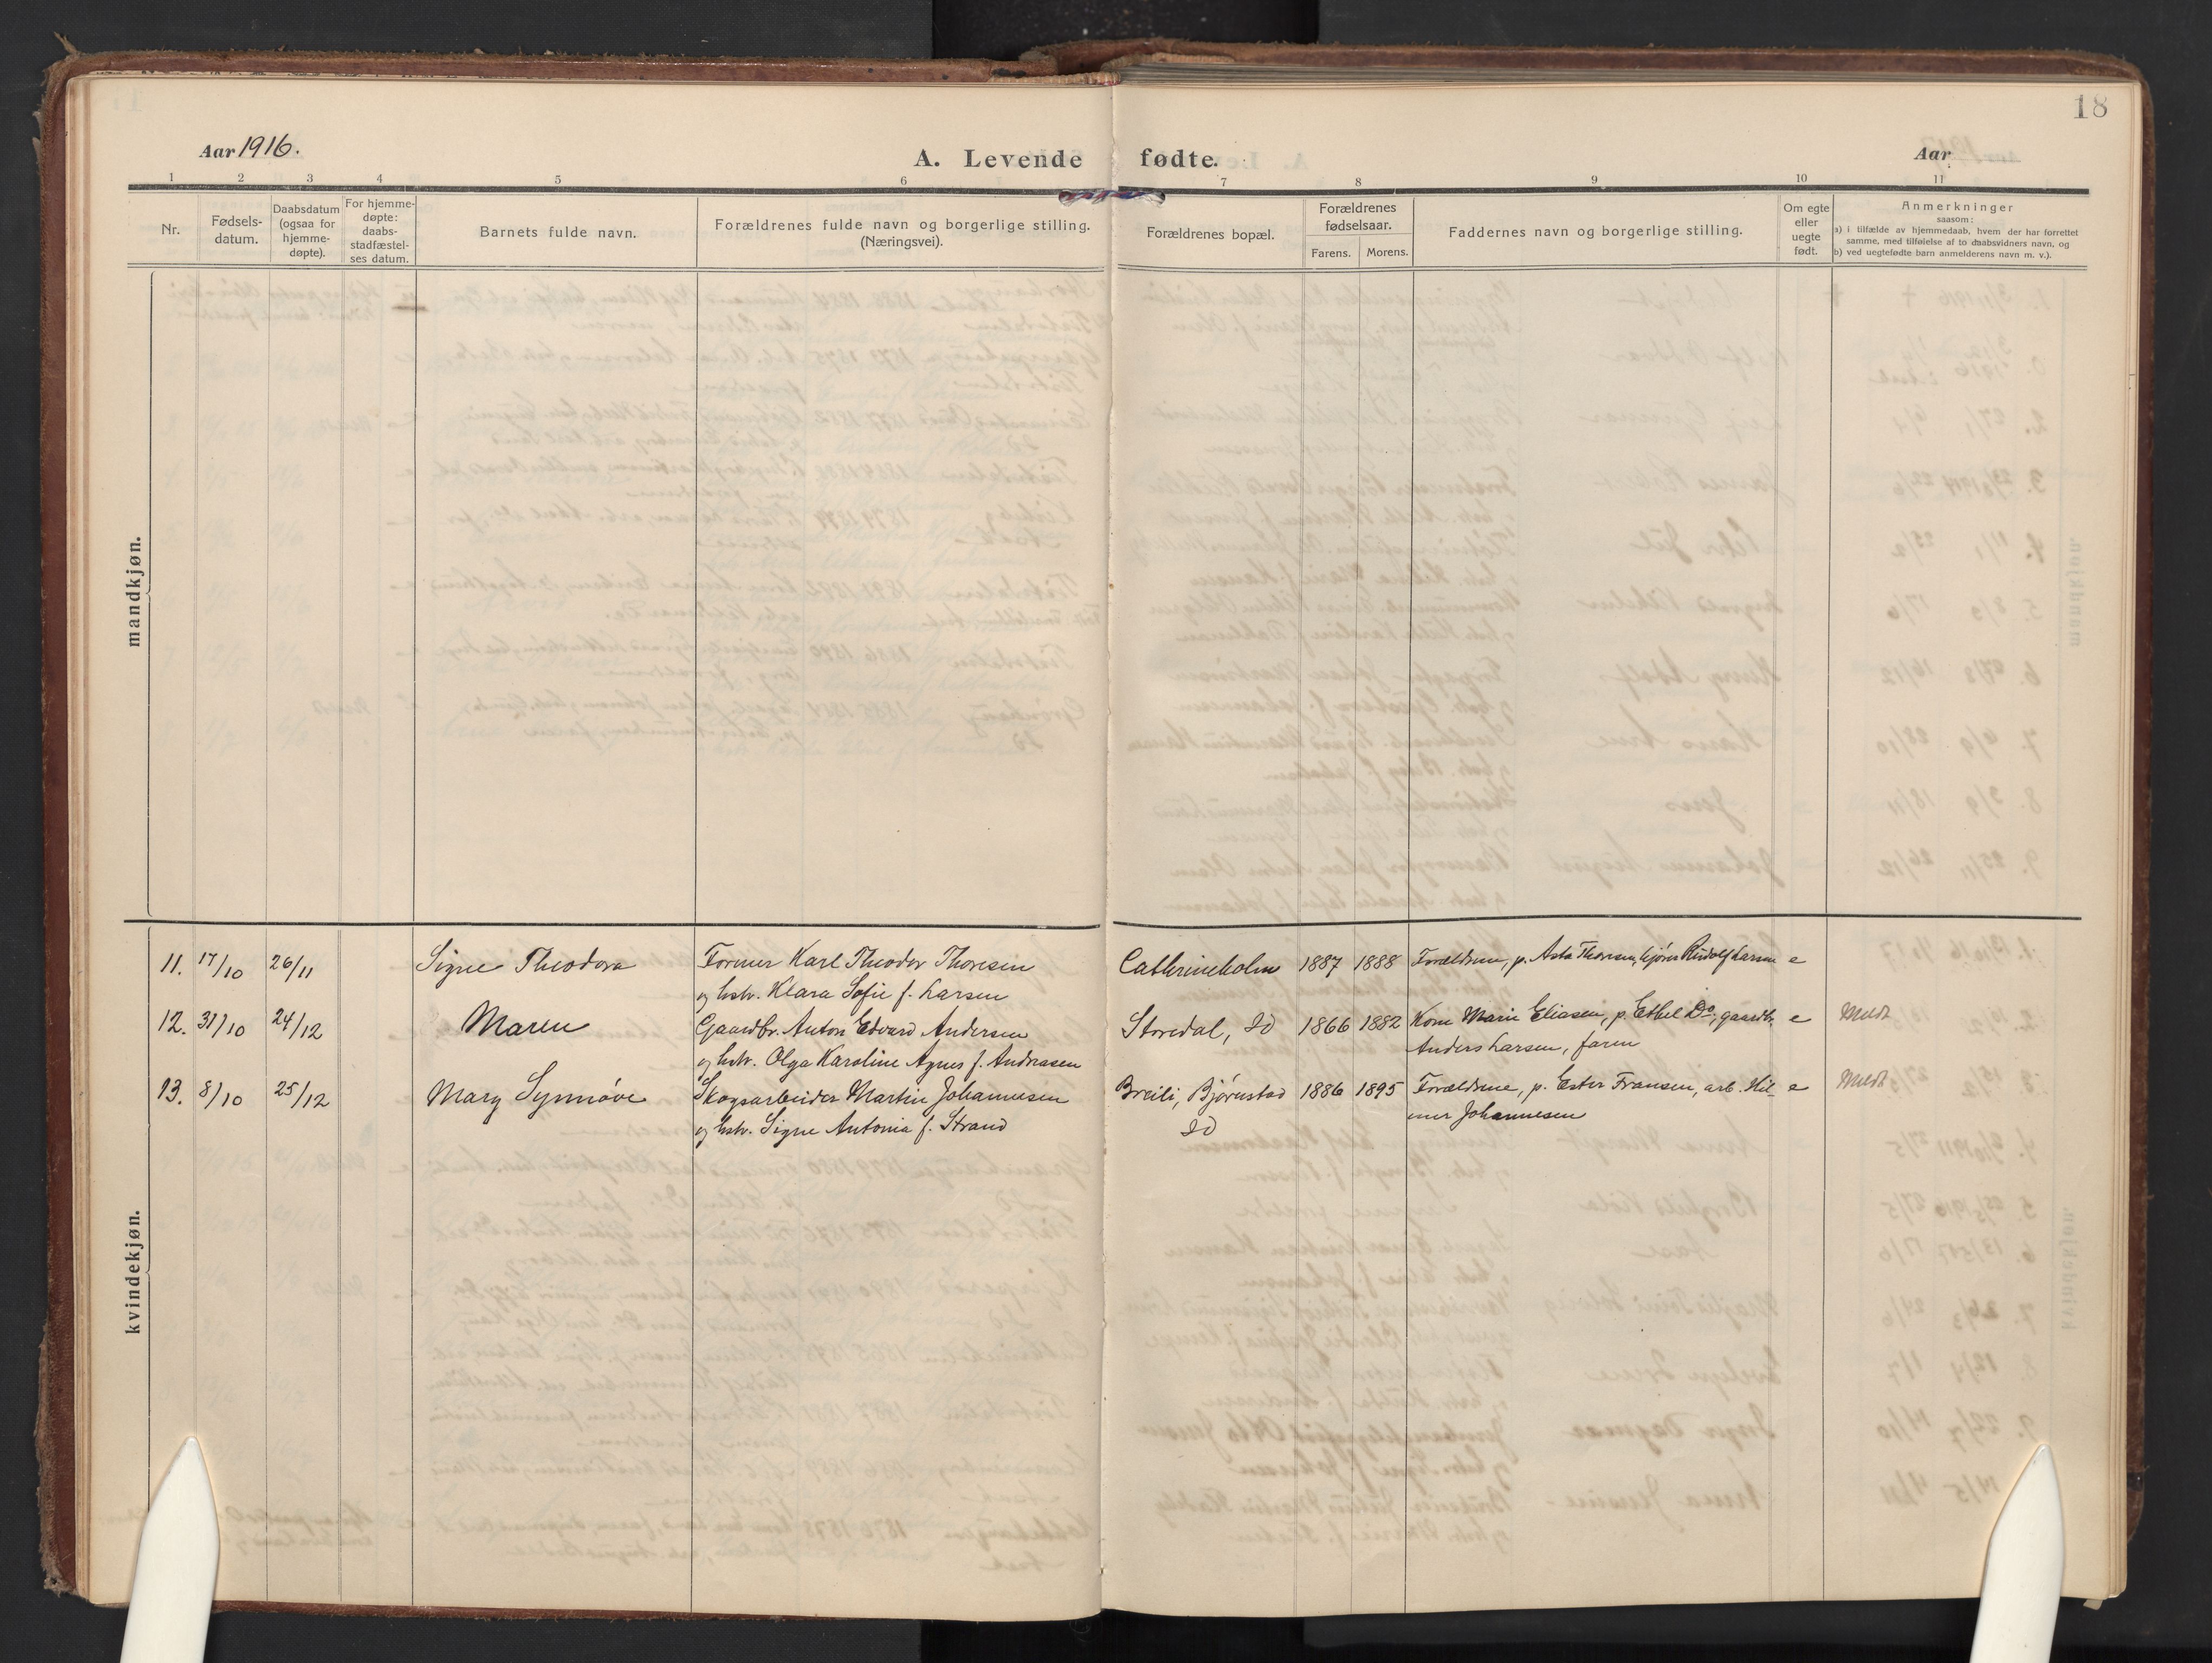 18
Aar 1916.
A. Levende fødte.
Aar
1 2 3 4 5 6 7 8 9 10 11
Nr.
Fødsels-
datum.
Daabsdatum
(ogsaa for
hjemme-
døpte).
For hjemme-
døpte:
daabs-
stadfæstel-
ses datum.
Barnets fulde navn.
Forældrenes fulde navn og borgerlige stilling.
(Næringsvei).
Forældrenes bopæl.
Forældrenes
fødselsaar.
Farens. Morens.
Faddernes navn og borgerlige stilling.
Om egte
eller
uegte
født.
Anmerkninger
saasom:
a) i tilfælde av hjemmedaab, hvem der har forrettet
samme, med tilføielse af to daabsvidners navn, og
b) ved uegtefødte barn anmelderens navn m. v.).
mandkjøn.
kvindekjøn.
11. 17/10 26/11 Signe Theodora Former Karl Theodor Thoresen Cathrineholm 1887 1888 Forældrene, p. Asta Thoresen, kjører Rudolf Larsen e
og hstr. Klara Sofie f. Larsen
12. 31/10 24/12 Maren Gaardbr. Anton Edvard Andersen Storedal, Id 1866 1882 Kone Marie Eliasen, p. Ethel Do, gaardbr. e Meldt
og hstr. Olga Karoline Agnes f. Andreasen Anders Larsen, faren
13. 8/10 25/12 Mary Synnøve Skogsarbeider Martin Johannesen Breili, Bjørnstad 1886 1895 Forældrene, p. Ester Fransen, arb. Hil- e Meldt
og hstr. Signe Antonia f. Strand Id mer Johannesen